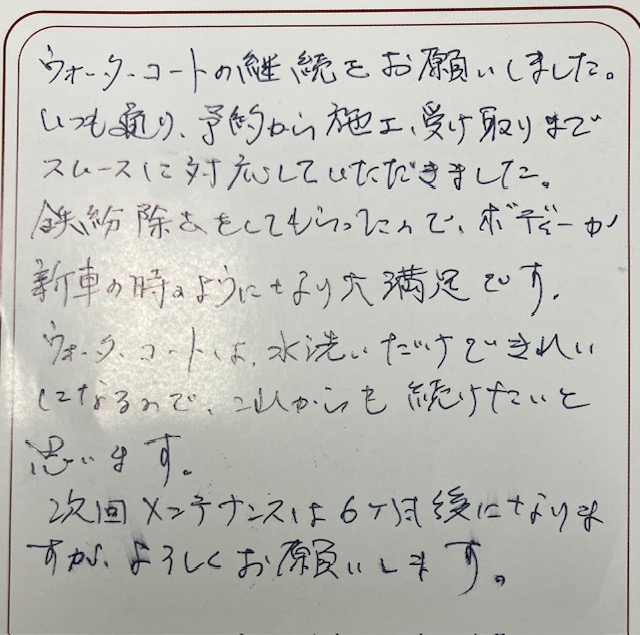 ウォーターコートの継続をお願いしました。
いつも通り、予約から施工、受け取りまで
スムースに対応していただきました。
鉄紛除去をしてもらったので、ボディーが
新車の時のようになり大満足です。
ウォーターコートは、水洗いだけできれい
になるので、これからも続けたいと
思います。
次回メンテナンスは6ケ月後になりま
すが、よろしくお願いします。